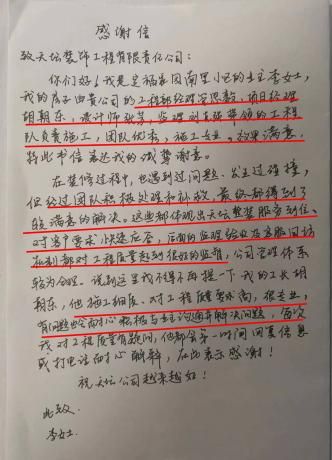 感谢信
致天坛装饰工程有限责任公司:
你们好!我是幸福家园南里小区的业主李女士,
我的房子由贵公司的工程部经理 项目经理
胡朝东,设计师张 监理刘 带领的工程
队负责施工,团队优秀,施工专业,效果满意,
特此书信表达我的诚挚谢意。
在装修过程中,也遇到过问题,发生过碰撞,
但经过团队积极处理和补救,最终都得到了
较满意的解决。这些都体现出天坛整装服务到位、
对客户要求快速应答,后面的监理 及客服回访
机制都对工程质量起到很好的监督,公司管理体系
较为合理。说到这里我不得不再提一下我的工长胡
朝东,他施工细度、对工程质量要求高,很专业,
有问题也会耐心积极与业主沟通并解决问题,每次
我对工程质量有疑问,他都会第一时间回复信息
或打电话耐心解释,在此表示感谢!
祝天坛公司越来越好!
此致
李女士